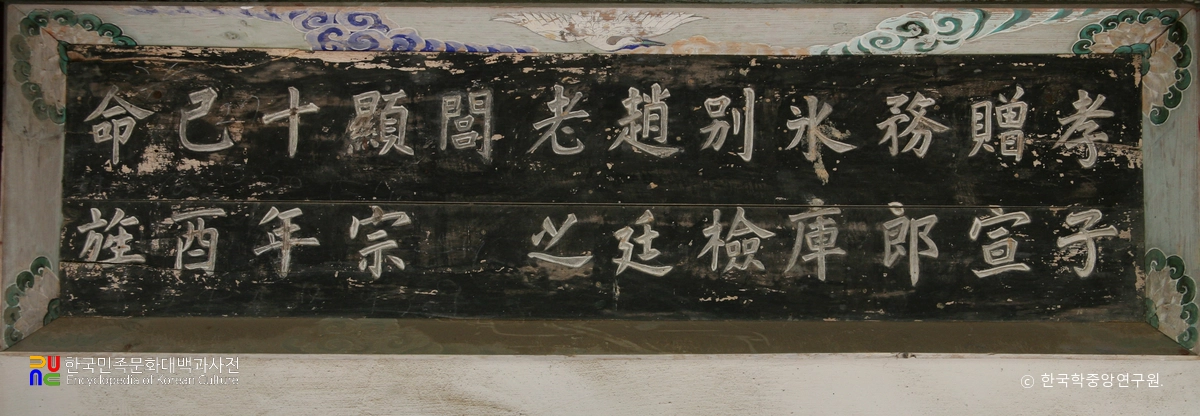 孝子
贈宣
務郎
氷庫
別檢
趙廷
老之
閭
顯宗
十年
己酉
命旌
한국민족문화대백과사전
Encyclopedia of Korean Culture
ⓒ 한국학중앙연구원.